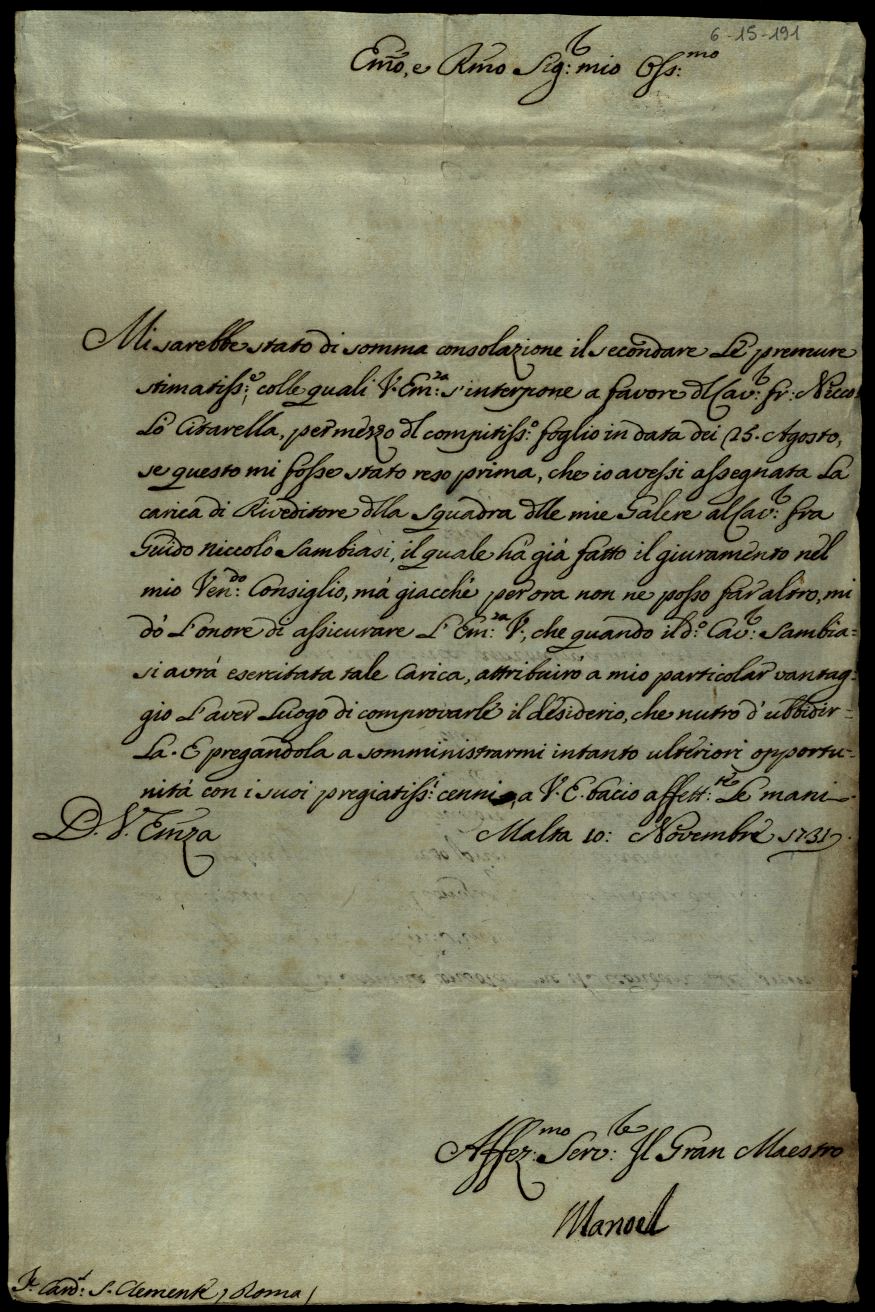 6-15-191
Em̃o, e Rm̃o Sig:r mio Oss:mo
Mi sarebbe stato di somma consolazione il secondare Le premure
stimatiss:e colle quali V. Em:za s'interpone a favore dl Cav:r fr: Nicco
Lò Citarella, per mezzo dl compitiss:o foglio in data dei 25. Agosto,
se questo mi fosse stato reso prima, che io avessi assegnata La
carica di Riveditore dlla Squadra dlle mie Galere al Cav:r fra
Guido Niccolò Sambiasi, il quale ha già fatto il giuramento nel
mio Ven:do Consiglio, mà giacchè per ora non ne posso far altro, mi
dò L'onore di assicurare L'Em:za V., che quando il d:o Cav:r Sambia-
si avrà esercitata tale Carica, attribuirò a mio particolar vantag=
gio L'aver Luogo di comprovarLe il desiderio, che nutro d'ubbidir=
La. E pregandola a somministrarmi intanto ulteriori opportu=
nità con i suoi pregiatiss:i cenni, a V. E. bacio affett:te Le mani
D. V. Em̃za Malta 10: Novembre 1731.
Affez:mo Serv:re Il Gran Maestro
Manoel
Sr. Card:l S. Clemente / Roma /